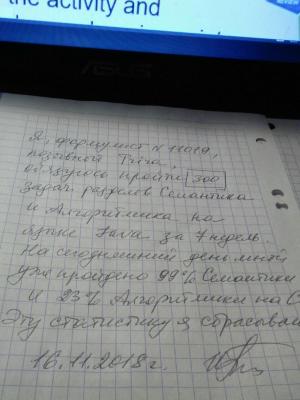 the activity and
ASUS
Я, форумист № 11019,
позывной Trira,
обязуюсь пройти 300
задач разделов Семантика
и Алгоритмика на
языке Java за 7 недель.
На сегодняшний день мной
уже пройдено 99% Семантики
и 23% Алгоритмики на C
Эту статистику я сбрасываю
16.11.2018 г.